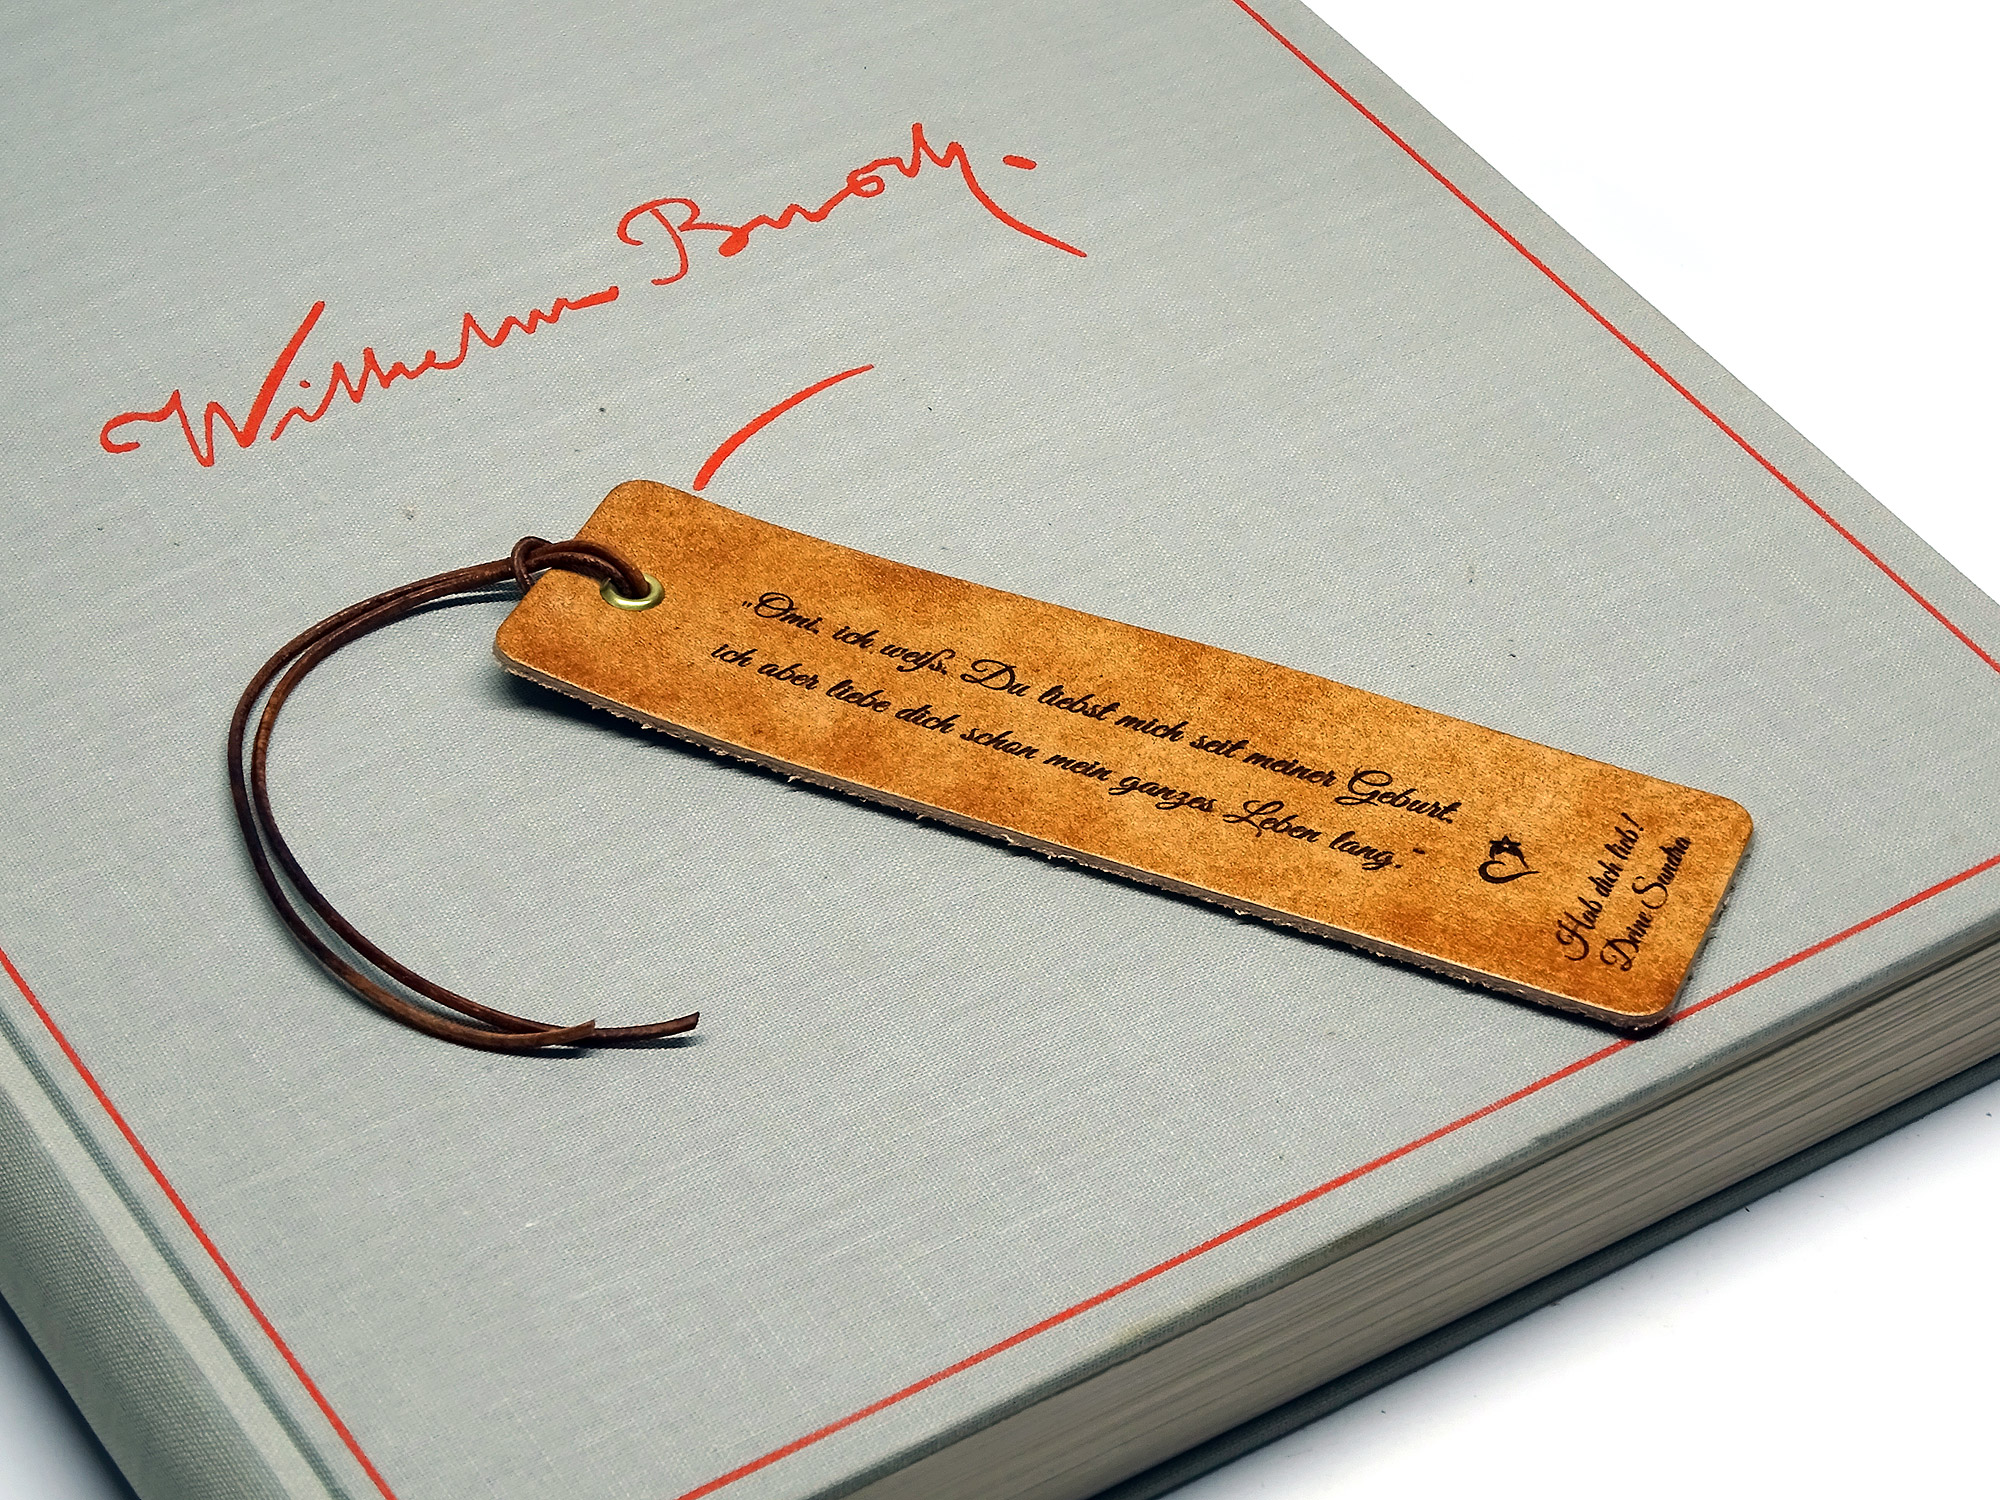 Wilhelm Busch.
„Omi, ich weiß, Du liebst mich seit meiner Geburt,
ich aber liebe dich schon mein ganzes Leben lang.“
Hab dich lieb!
Deine Sandra